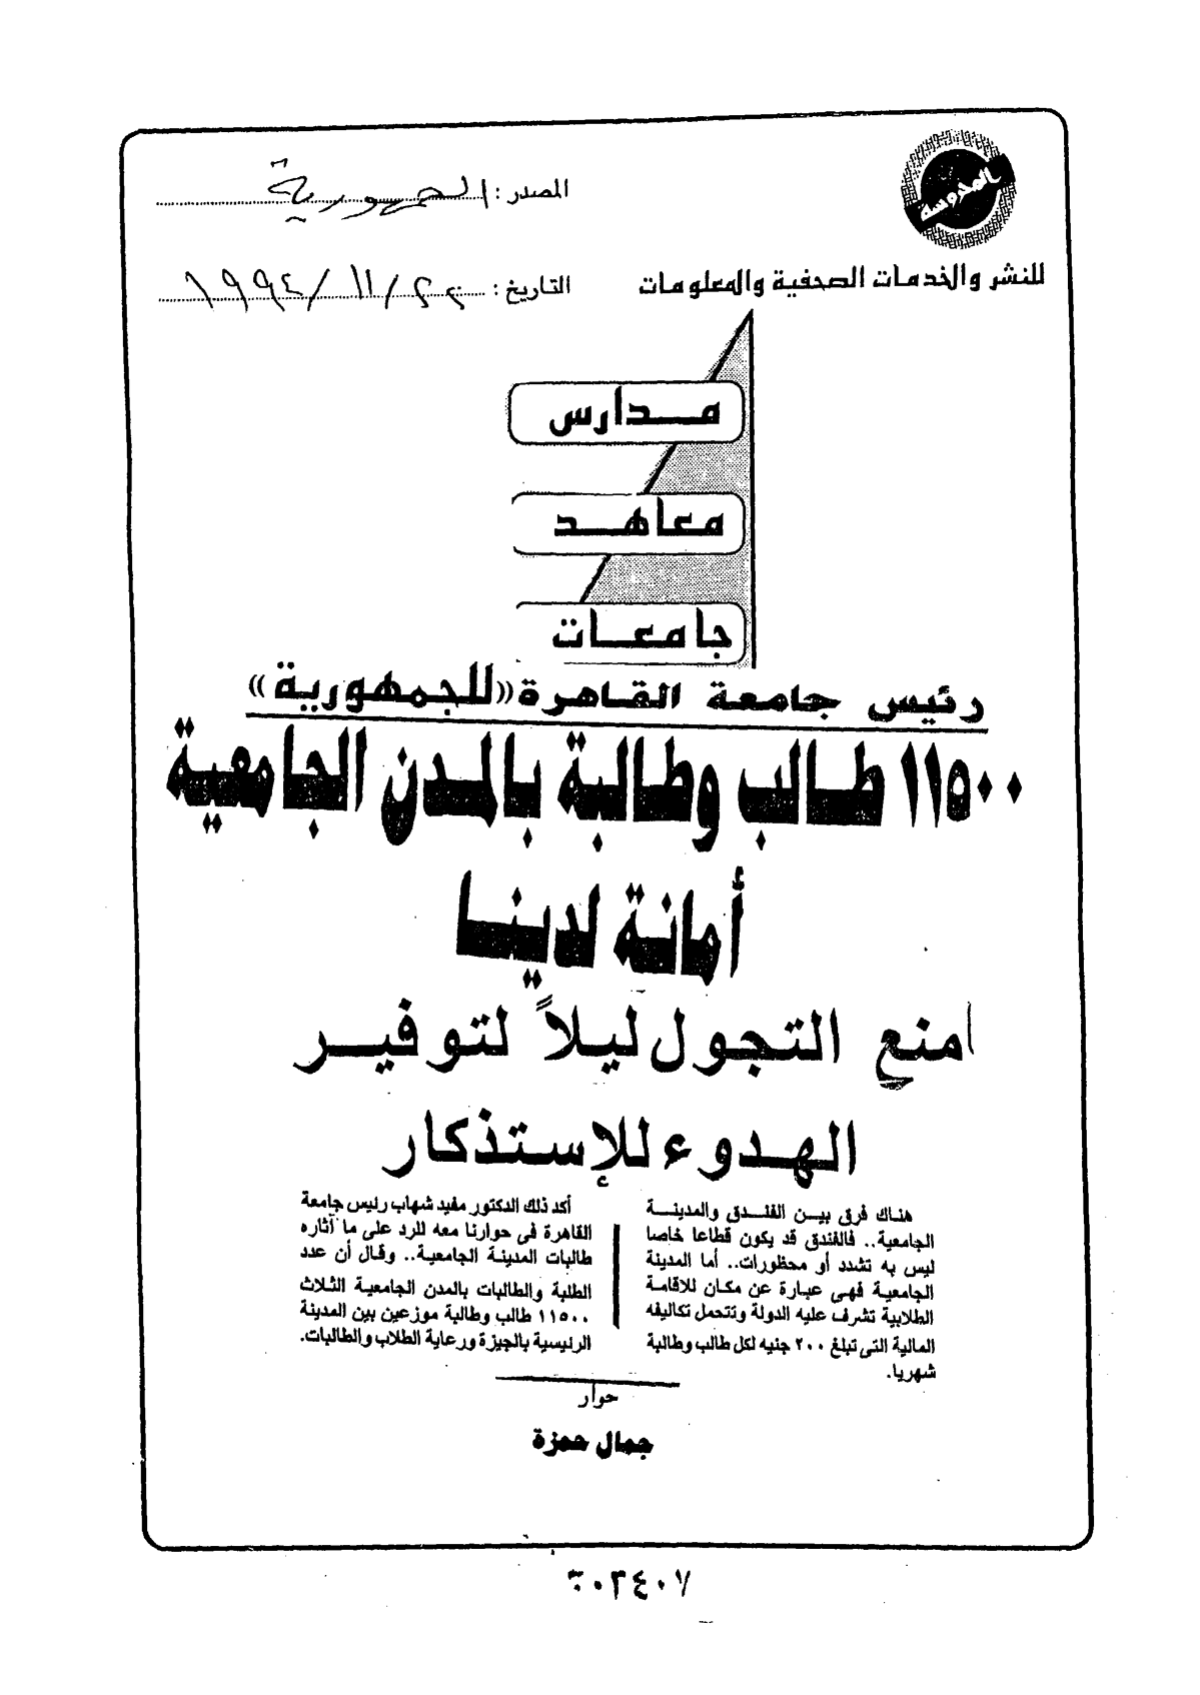 المحروسة
للنشر والخدمات الصحفية والمعلومات
المصدر : الجمهورية
التاريخ : ٢٢ / ١١ / ١٩٩٤
مدارس
معاهد
جامعات
رئيس جامعة القاهرة «للجمهورية»
١١٥٠٠ طالب وطالبة بالمدن الجامعية
أمانة لدينا
امنع التجول ليلاً لتوفير
الهدوء للإستذكار
هناك فرق بين الفندق والمدينة
الجامعية.. فالفندق قد يكون قطاعا خاصا
ليس به تشدد أو محظورات.. أما المدينة
الجامعية فهى عبارة عن مكان للاقامة
الطلابية تشرف عليه الدولة وتتحمل تكاليفه
المالية التى تبلغ ٢٠٠ جنيه لكل طالب وطالبة
شهريا.
أكد ذلك الدكتور مفيد شهاب رئيس جامعة
القاهرة فى حوارنا معه للرد على ما آثاره
طالبات المدينة الجامعية.. وقال أن عدد
الطلبة والطالبات بالمدن الجامعية الثلاث
١١٥٠٠ طالب وطالبة موزعين بين المدينة
الرئيسية بالجيزة ورعاية الطلاب والطالبات.
حوار
جمال حمزة